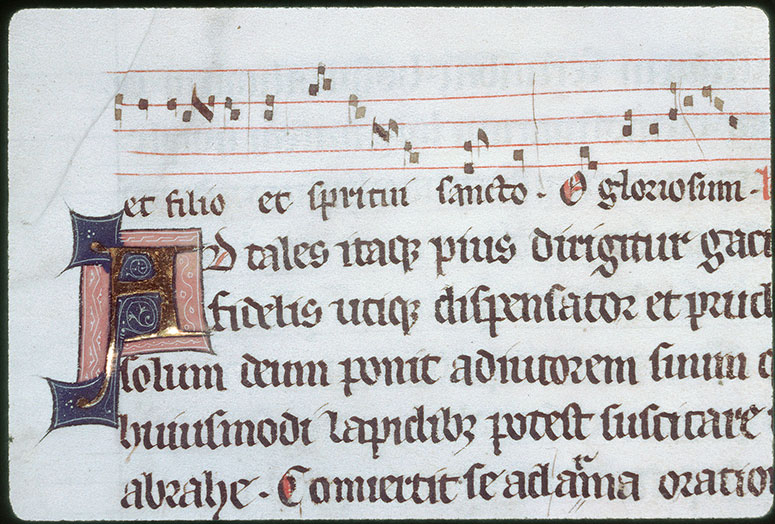 et filio et spiritui sancto. O gloriosum.
Ad tales itaqꝫ pius dirigitur gact
fidelis utiqꝫ dispensator et prud
solum deum ponit adiutorem suum
huiusmodi lapidibꝫ potest suscitare
abrahe. Conuertit se ad arma oratio